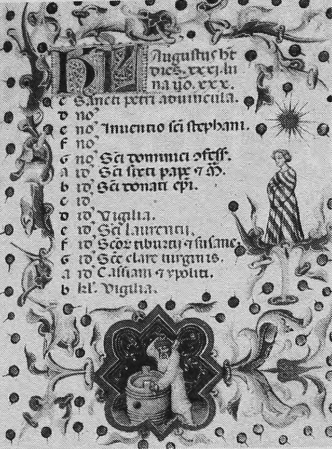 KL Augustus ht
dies. xxxi. lu
na ů0. xxx.
c Sancti petri aduincula.
d no
e no Inuentio sci stephani.
f no
G no Sci dominici ꝯfess.
a id Sci sixti pape ⁊ M.
b id Sci donati epi.
c id
d id Vigilia.
e id Sci laurencij.
f id Scoꝝ tiburtij ⁊ susane.
G id Sce clare uirginis.
a id Cassiani ⁊ ypoliti.
b kl. Vigilia.